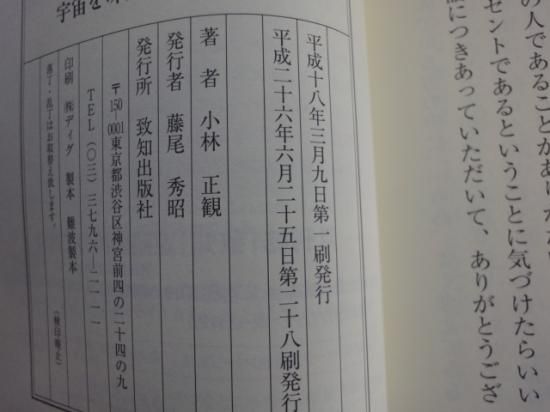 の人であることがあ
セントであるということに気づけたらいい
につきあっていただいて、ありがとうござ
平成十八年三月九日第一刷発行
平成二十六年六月二十五日第二十八刷発行
著者 小林 正観
発行者 藤尾 秀昭
発行所 致知出版社
〒150-0001東京都渋谷区神宮前四の二十四の九
TEL(〇三)三七九六―二一一一
印刷 ㈱ディグ 製本 難波製本
落丁・乱丁はお取替え致します。
(検印廃止)
宇宙を味